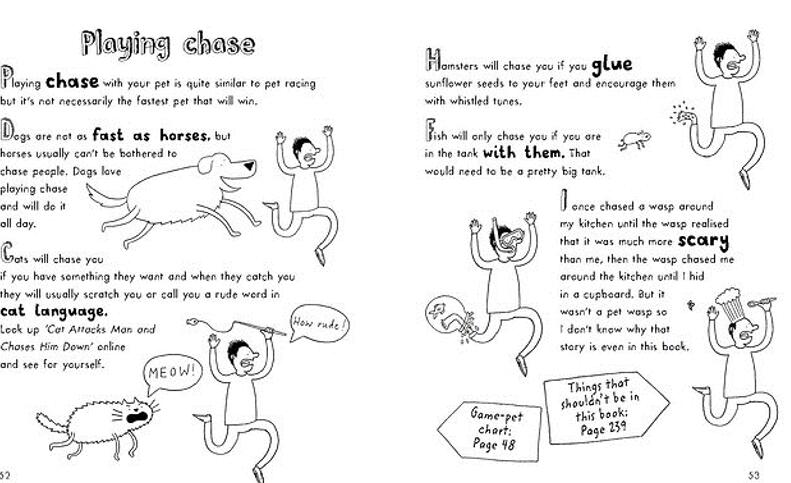 Playing chase
Playing chase with your pet is quite similar to pet racing
but it's not necessarily the fastest pet that will win.
Dogs are not as fast as horses, but
horses usually can't be bothered to
chase people. Dogs love
playing chase
and will do it
all day.
Cats will chase you
if you have something they want and when they catch you
they will usually scratch you or call you a rude word in
cat language.
Look up 'Cat Attacks Man and
Chases Him Down' online
and see for yourself.
How rude!
MEOW!
52
Hamsters will chase you if you glue
sunflower seeds to your feet and encourage them
with whistled tunes.
Fish will only chase you if you are
in the tank with them. That
would need to be a pretty big tank.
I once chased a wasp around
my kitchen until the wasp realised
that it was much more scary
than me, then the wasp chased me
around the kitchen until I hid
in a cupboard. But it
wasn't a pet wasp so
I don't know why that
story is even in this book.
Game-pet
chart:
Page 48
Things that
shouldn't be in
this book:
Page 239
53